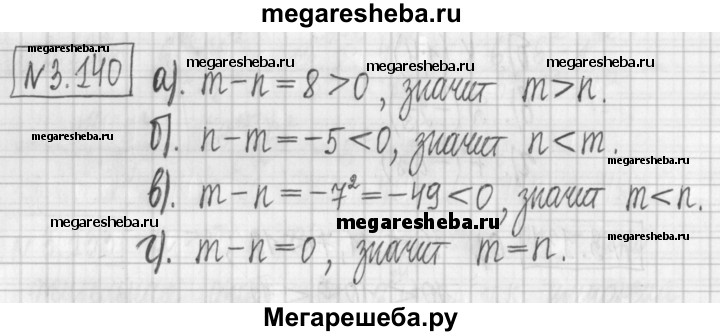 megaresheba.ru
megaresheba.ru megaresheba.ru megaresheba.ru megaresheba.ru
№3.140 а). m-n=8>0, значит m>n.
megaresheba.ru б). n-m=-5<0, значит n<m.
megaresheba.ru
в). m-n=-7²=-49<0, значит m<n.
megaresheba.ru megaresheba.ru megaresheba.ru
г). m-n=0, значит m=n.
Мегарешеба.ру